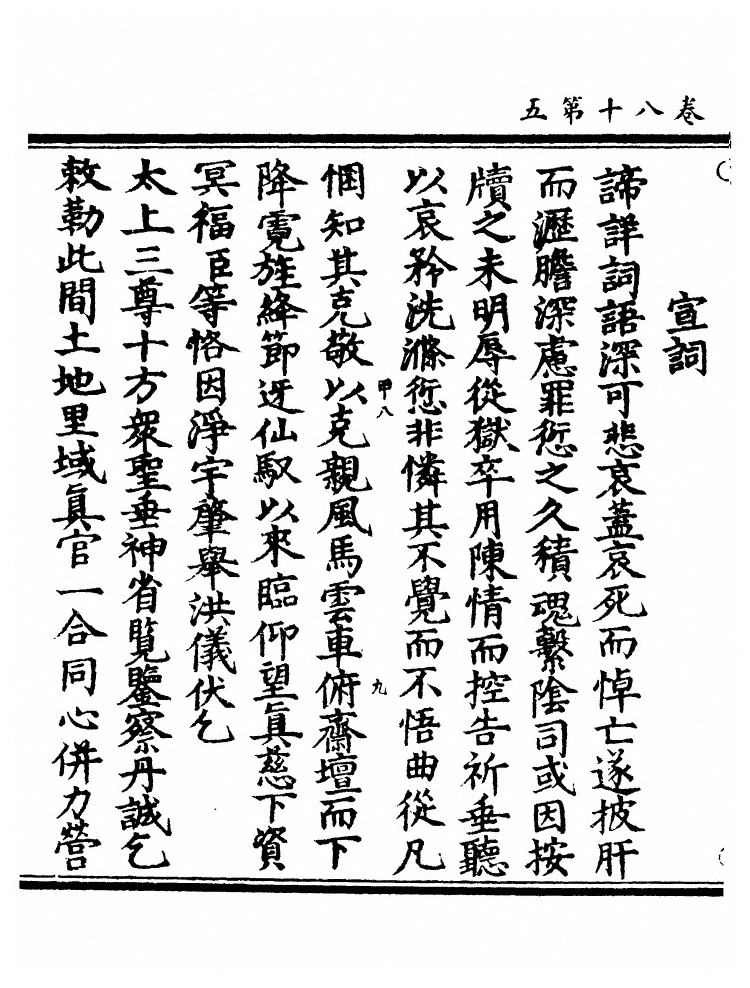 卷八十第五
宣詞
諦詳詞語深可悲哀蓋哀死而悼亡遂披肝
而瀝膽深慮罪愆之久積魂繫陰司或因按
牘之未明辱從獄卒用陳情而控告祈垂聽
以哀矜洗滌愆非憐其不覺而不悟曲從凡
悃知其克敬以克親風馬雲車俯齋壇而下
甲八
九
降霓旌絳節迓仙馭以來臨仰望眞慈下資
冥福臣等恪因淨宇肇舉洪儀伏乞
太上三尊十方衆聖垂神省覽鑒察丹誠乞
敕勒此間土地里域眞官一合同心併力營